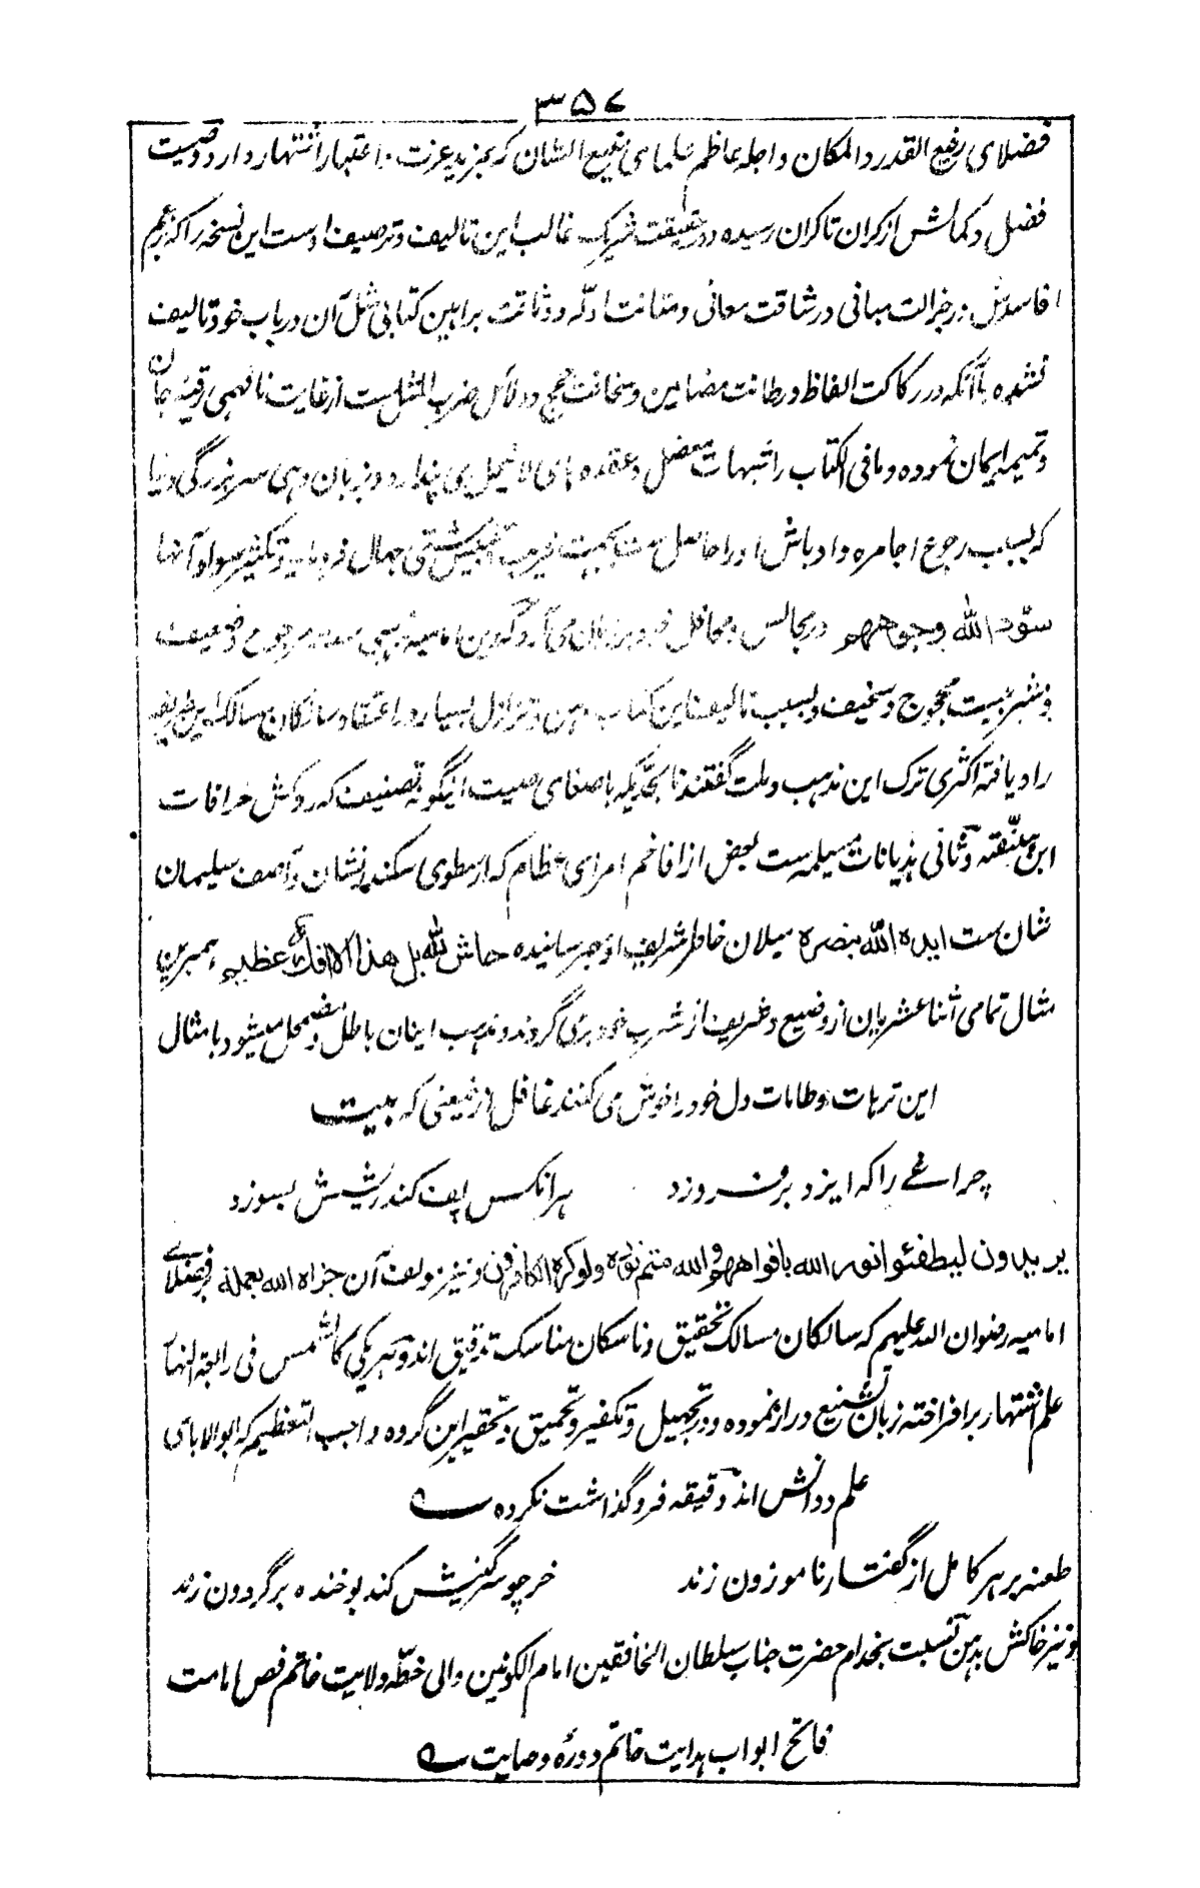 ۳۵۷
فضلای رفیع القدر والمکان و اجله اعاظم علمای رفیع الشان که بمزید عزت و اعتبار اشتهار دارد وصیت
فضل و کمالش از کران تا کران رسیده و در حقیقت شریک غالب این تالیف و ترصیف اوست این نسخه را که بزعم
افاسدش در جزالت مبانی و رشاقت معانی و متانت ادله و وثاقت براهین کتابی مثل آن در باب خود تالیف
نشده باآنکه در رکاکت الفاظ و بطانت مضامین و سخافت حجج و دلائل ضرب المثل ست از غایت نافهمی رقیهٔ جان
و تمیمه ایمان نموده و مافی الکتاب را شبهات معضل و عقده های لاینحل می پندارد و بزبان دهی سر بزرگی دنیا
که بسبب رجوع اجامره و اوباش او را حاصل ست بجهت فریب جهال فرومایه و تکثیر سواد آنها
سوّد الله وجوههم در مجالس و محافل خود بر زبان می آرد که دین امامیه مذهبی ست مرجوح و ضعیف
و مشربیست مجوج و سخیف و بسبب تالیف این کتاب وهن و تزلزل بسیار در اعتقاد سالکان مسالک این طریقه
راه یافته اکثری ترک این مذهب و ملت گفتند تا بحدیکه باصغای صیت اینگونه تصنیف که روکش خرافات
ابن هبنّقه و ثانی هذیانات مسیلمه ست بعض از افاخم امرای عظام که ارسطوی سکندر نشان و آصف سلیمان
شان ست ایده الله بنصره میلان خاطر شریف او بهم رسانیده حاش لله بل هذا الا افک عظیم همبرین
مثال تمامی اثنا عشریان از وضیع و شریف از مشرب خود بری گردند و مذهب اینان باطل و مضمحل میشود بامثال
این ترهات و طامات دل خود را خوش می کنند غافل ازینمعنی که بیت
چراغے را که ایزد برفروزد هرانکس پف کند ریشش بسوزد
یریدون لیطفئوا نور الله بافواههم والله متم نوره ولو کره الکافرون و نیز مولف آن جزاه الله بعمله بر فضلاے
امامیه رضوان الله علیهم که سالکان مسالک تحقیق و ناسکان مناسک تدقیق اند و هر یکی کالشمس فی رابعة النهار
علم اشتهار برافراخته زبان تشنیع دراز نموده و در تجهیل و تکفیر و تحمیق و تحقیر این گروه واجب التعظیم که ابو الابای
علم و دانش اند دقیقه فروگذاشت نکرده ے
طعنه بر هر کامل از گفتار ناموزون زند خر چو سرگینش کند بو خنده بر گردون زند
و نیز خاکش بدهن نسبت بخدام حضرت جناب سلطان الخافقین امام الکونین والی خطّه ولایت خاتم فص امامت
فاتح ابواب هدایت خاتم دورهٔ وصایت ے